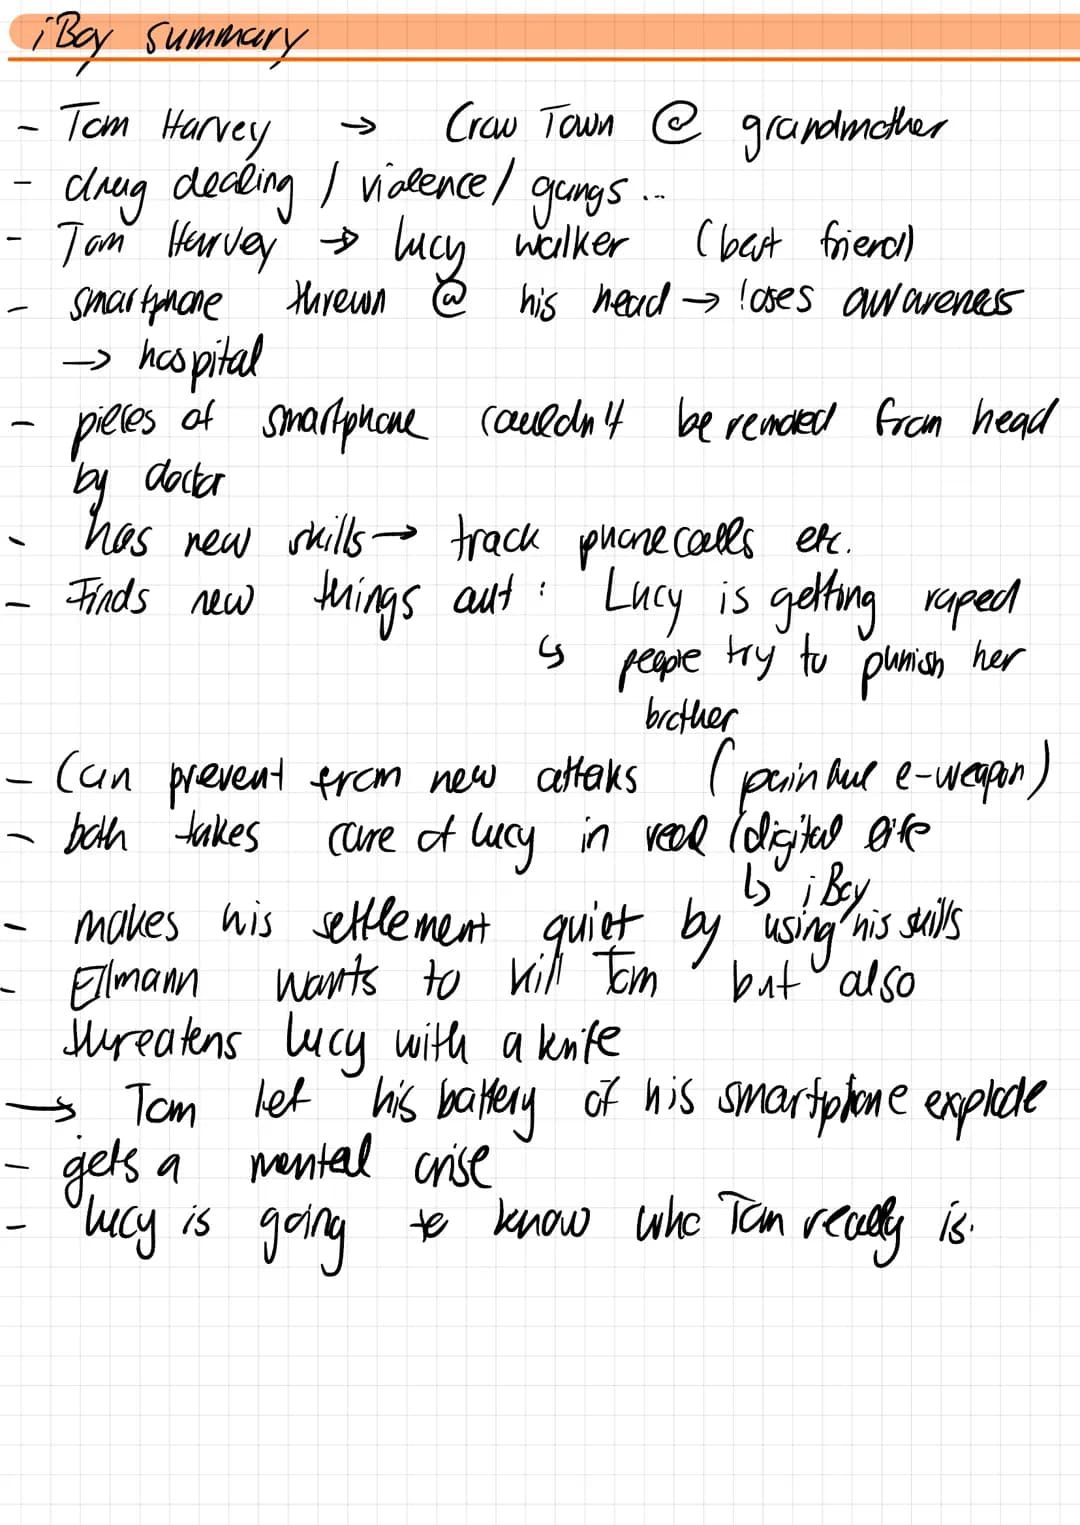 iBoy summary
- Tom Harvey → Crow Town @ grandmother
- drug dealing / violence / gangs ...
- Tom Harvey → Lucy Walker (best friend)
- smartphone thrown @ his head → loses awareness
→ hospital
- pieces of smartphone couldn't be removed from head
by doctor
- has new skills → track phone calls etc.
- Finds new things out : Lucy is getting raped
↳ people try to punish her
brother
- Can prevent from new attaks (painful e-weapon)
- both takes care of Lucy in real / digital life
↳ iBoy
- makes his settlement quiet by using his skills
- Ellmann wants to kill Tom but also
threatens Lucy with a knife
→ Tom let his battery of his smartphone explode
- gets a mental crise
- Lucy is going to know who Tom really is.